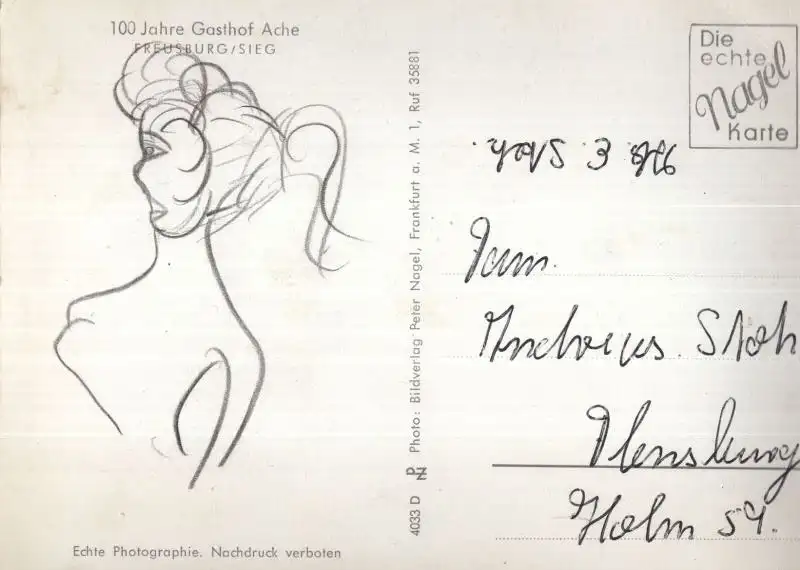 100 Jahre Gasthof Ache
FREUSBURG/SIEG
Echte Photographie. Nachdruck verboten
4033 D
Photo: Bildverlag Peter Nagel, Frankfurt a. M. 1, Ruf 35881
Die
echte
Nagel
Karte
Fam.
Andreas Stoh
Flensburg
Holm 59.